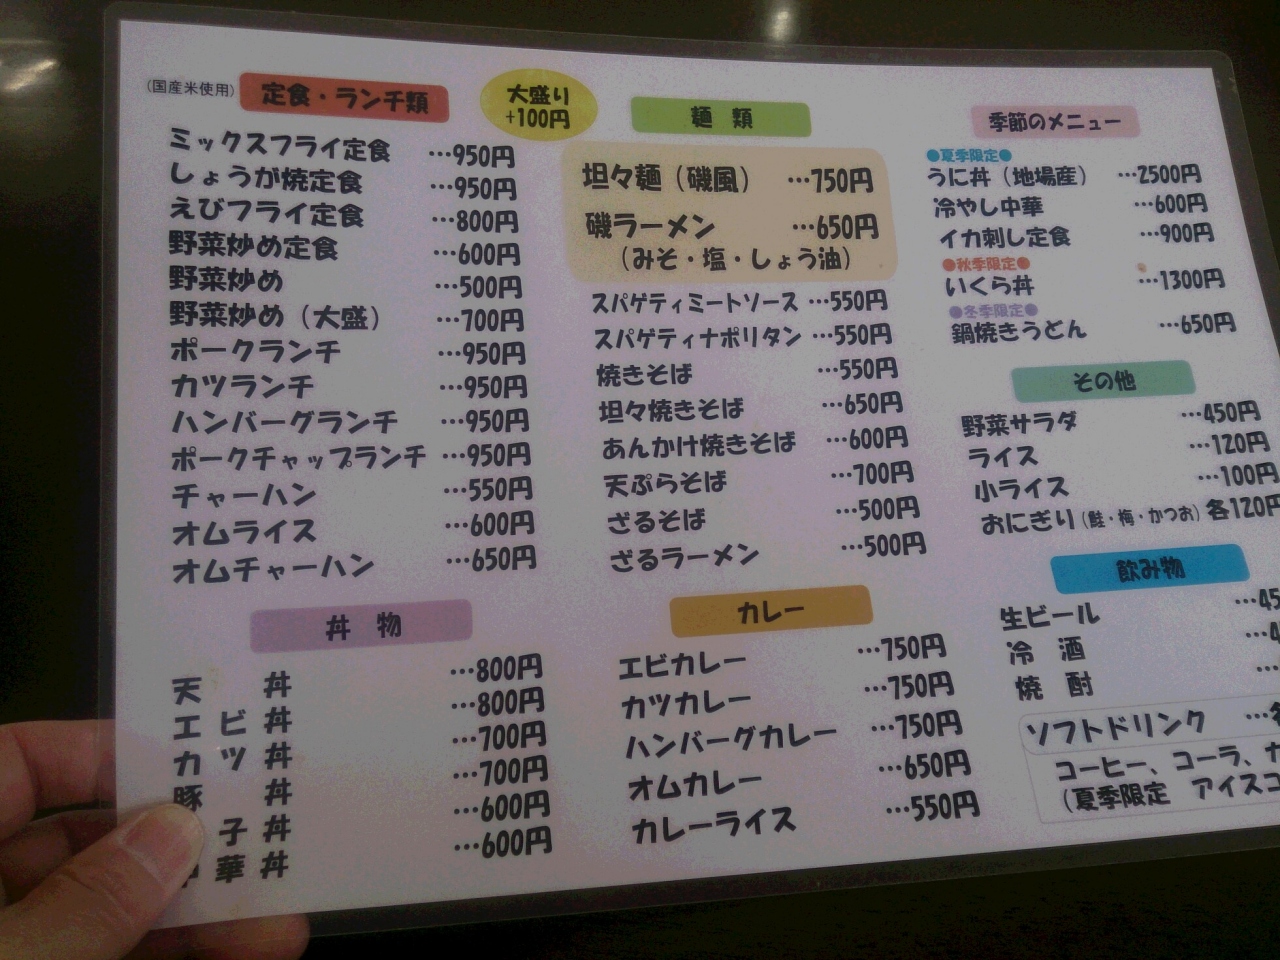 (国産米使用)
定食・ランチ類
大盛り
+100円
ミックスフライ定食 …950円
しょうが焼定食 …950円
えびフライ定食 …800円
野菜炒め定食 …600円
野菜炒め …500円
野菜炒め（大盛） …700円
ポークランチ …950円
カツランチ …950円
ハンバーグランチ …950円
ポークチャップランチ …950円
チャーハン …550円
オムライス …600円
オムチャーハン …650円
丼 物
天 丼 …800円
エビ丼 …800円
カツ丼 …700円
豚 丼 …700円
子丼 …600円
華丼 …600円
麺 類
坦々麺（磯風） …750円
磯ラーメン …650円
（みそ・塩・しょう油）
スパゲティミートソース …550円
スパゲティナポリタン …550円
焼きそば …550円
坦々焼きそば …650円
あんかけ焼きそば …600円
天ぷらそば …700円
ざるそば …500円
ざるラーメン …500円
カレー
エビカレー …750円
カツカレー …750円
ハンバーグカレー …750円
オムカレー …650円
カレーライス …550円
季節のメニュー
●夏季限定●
うに丼（地場産） …2500円
冷やし中華 …600円
イカ刺し定食 …900円
●秋季限定●
いくら丼 …1300円
●冬季限定●
鍋焼きうどん …650円
その他
野菜サラダ …450円
ライス …120円
小ライス …100円
おにぎり（鮭・梅・かつお）各120円
飲み物
生ビール …45
冷 酒 …4
焼 酎 …
ソフトドリンク …各
コーヒー、コーラ、
（夏季限定 アイスコ